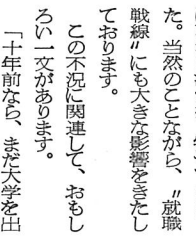 た。当然のことながら、〝就職
戦線〟にも大きな影響をきたし
ております。
この不況に関連して、おもし
ろい一文があります。
「十年前なら、まだ大学を出